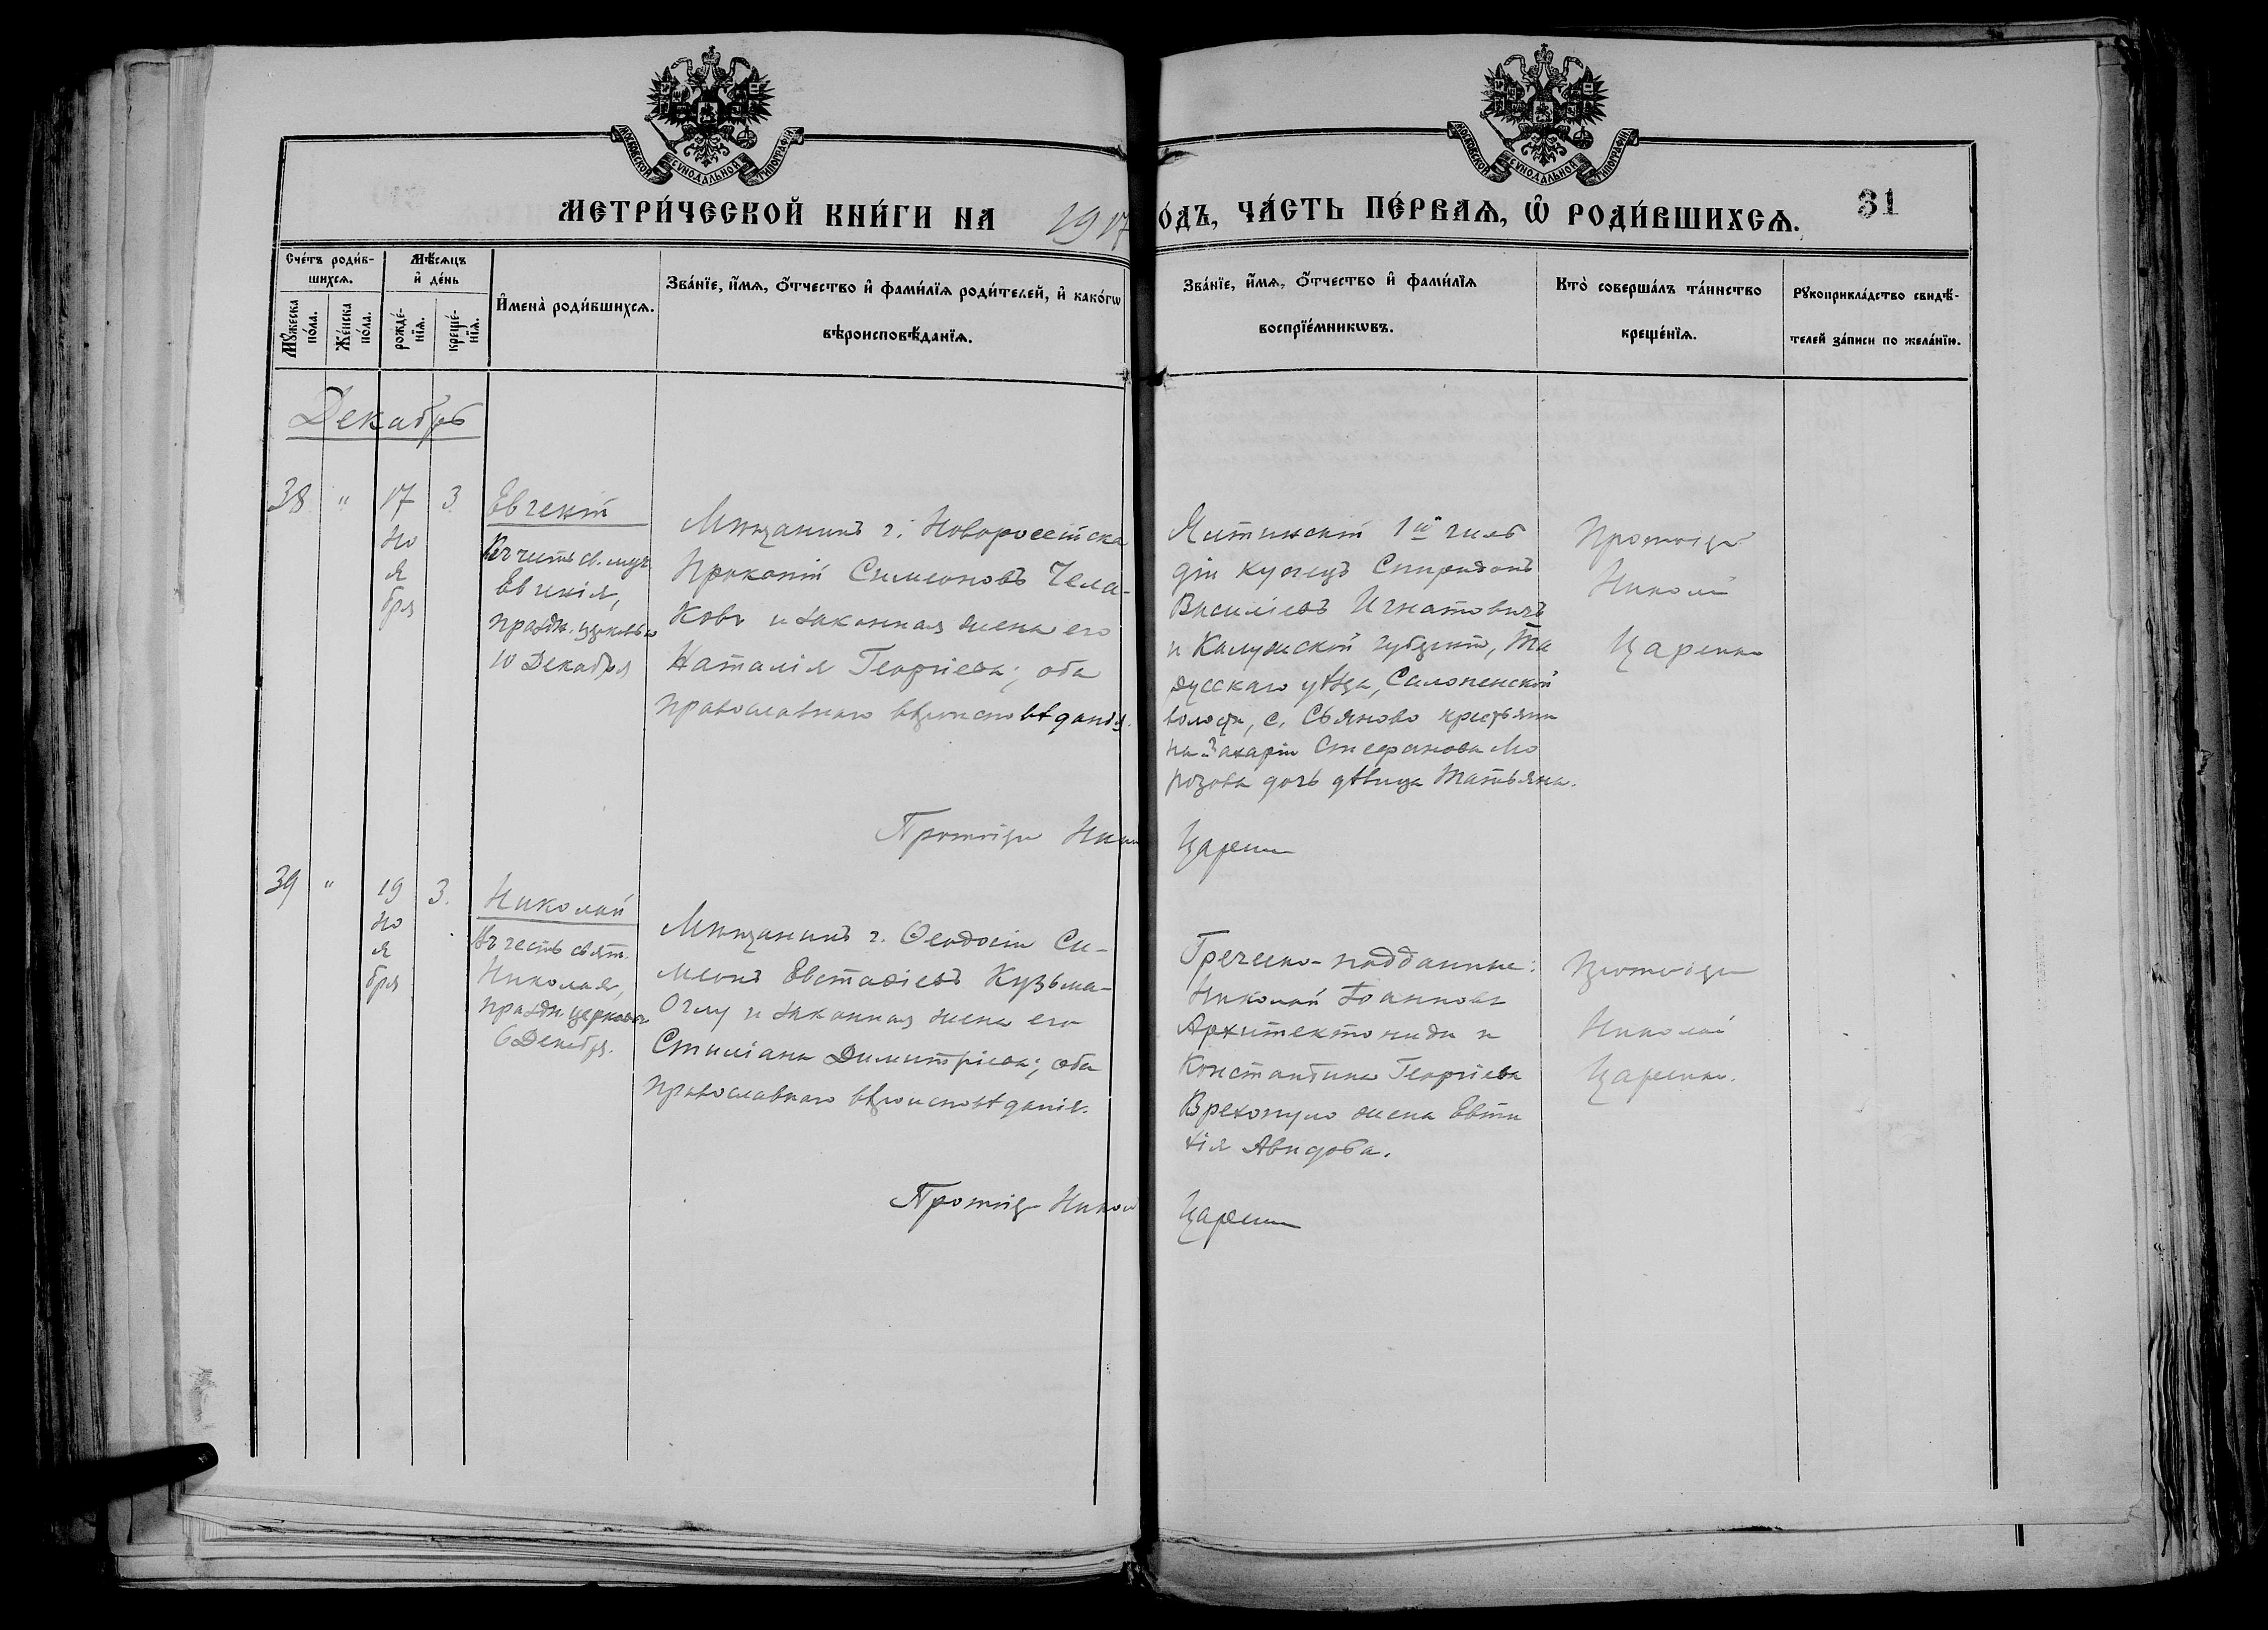 МОСКОВСКОЙ СѴНОДАЛЬНОЙ ТИПОГРАФІИ
МОСКОВСКОЙ СѴНОДАЛЬНОЙ ТИПОГРАФІИ
МЕТРИ́ЧЕСКОЙ КНИ́ГИ НА 1917
О́ДЪ, ЧА́СТЬ ПЕ́РВАѦ, Ѽ РОДИ́ВШИХСѦ.
31
Сче́тъ роди́в-
шихсѧ.
Мꙋ́жеска по́ла.
Же́нска по́ла.
Мѣ́сѧцъ
и҆ де́нь
рожде́-
нїѧ.
креще́-
нїѧ.
И҆мена̀ роди́вшихсѧ.
Зва́нїе, и҆́мѧ, ѻ҆́тчество и҆ фами́лїѧ роди́телей, и҆ како́гѡ
вѣроисповѣ́данїѧ.
Зва́нїе, и҆́мѧ, ѻ҆́тчество и҆ фами́лїѧ
воспрїе́мникѡвъ.
Кто̀ соверша́лъ та́инство
креще́нїѧ.
Рꙋкоприкла́дство свидѣ́-
телей за́писи по жела́нїю.
Декабрь
38 " 17 3
Но
я
бря
Евгеній
Въ честь св. муч
Евгенія,
праздн. церковью
10 Декабря
Мѣщанинъ г. Новороссійска
Прокопій Симеоновъ Чела-
ковъ и законная жена его
Наталія Георгіева; оба
православнаго вѣроисповѣданія.
Ялтинскій 1й гиль
діи купецъ Спиридонъ
Василіевъ Игнатовичъ
и Калужской губерніи, Та
русскаго уѣзда, Салопенской
волости, с. Сьяново крестьяни
на Захаріи Стефанова Мо
розова дочь дѣвица Татьяна.
Протоіер.
Николай
Царенко
Протоіер Никол
Царенко
39 " 19 3.
Но
я
бря
Николай
Въ честь свят.
Николая,
праздн церковью
6 Декабря.
Мѣщанинъ г. Ѳеодосіи Си-
меонъ Евстафіевъ Кузьма-
Оглу и законная жена его
Стиліана Димитріева; оба
православнаго вѣроисповѣданія.
Греческо-подданные:
Николай Іоанновъ
Архитектониди и
Константина Георгіева
Врехопуло жена Евти
хія Авидова.
Протоіер
Николай
Царенко.
Протоіер Никол
Царенко